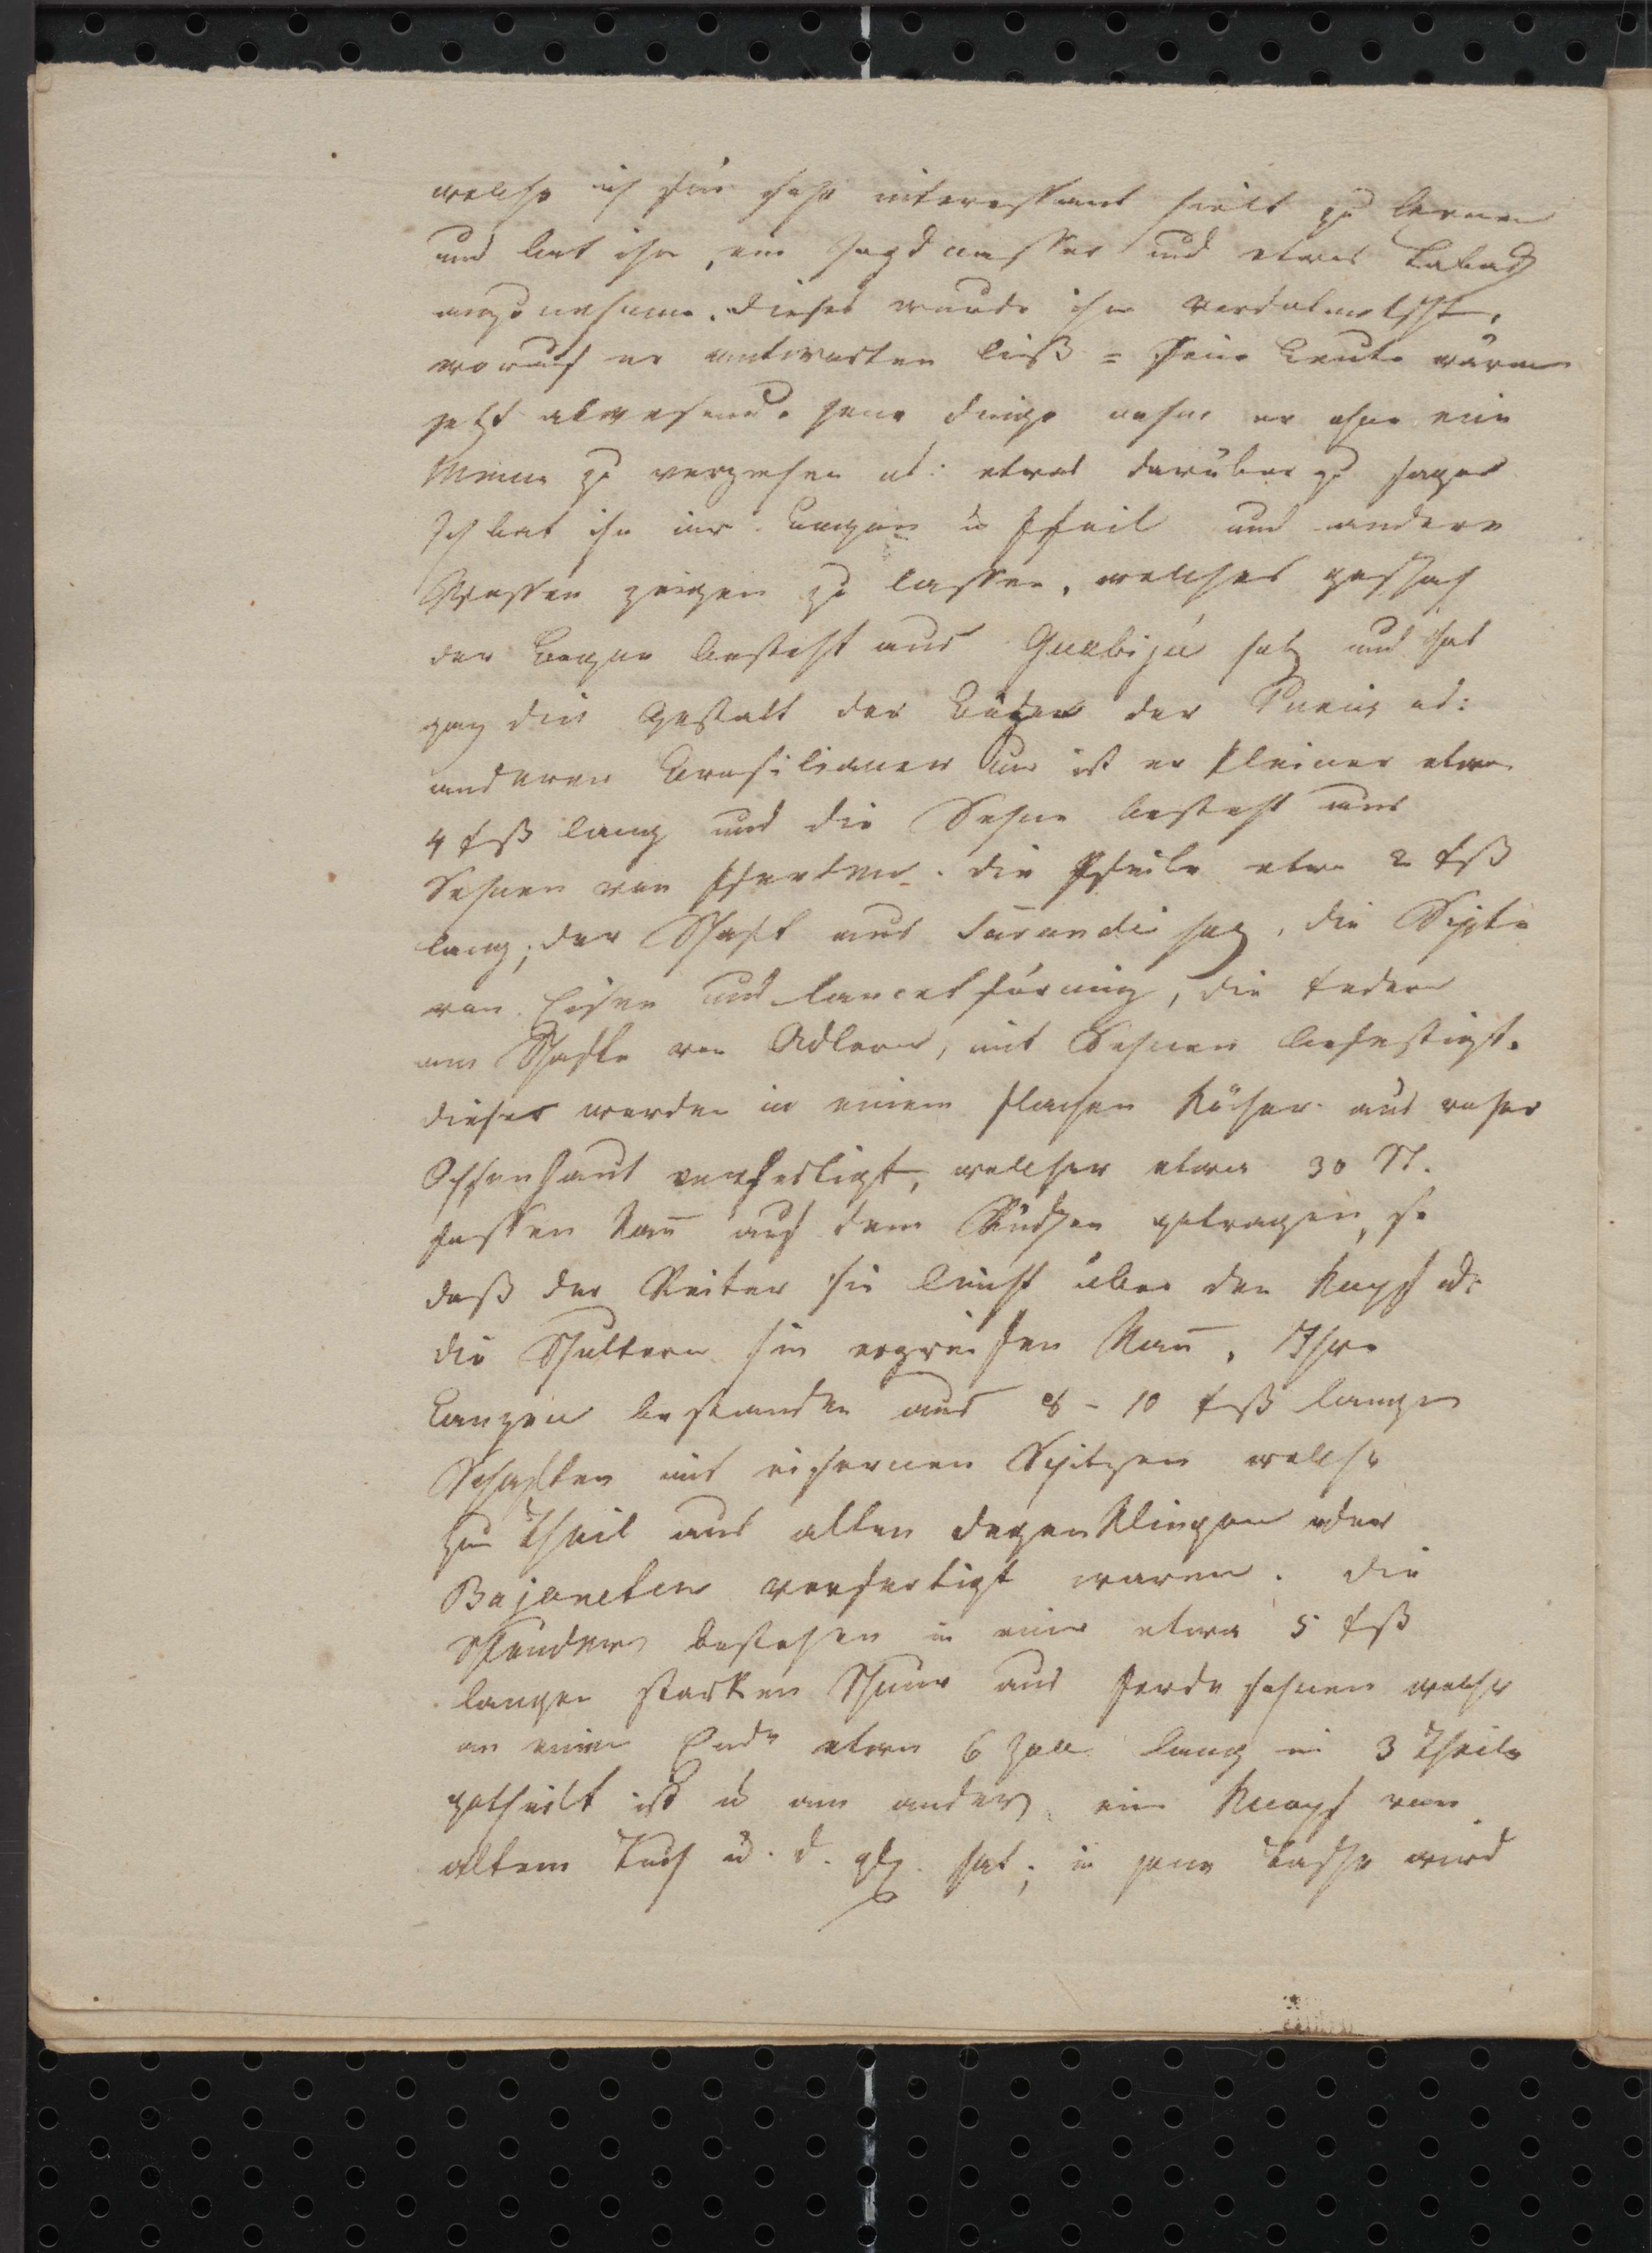 welche ich für sehr interessant hielt zu lernen
und bat ihn, ein Jagdmesser und etwas Taback
anzunehmen. dieses wurde ihm verdolmetscht,
worauf er antworten ließ = seine Leute wären
jetzt abwesend. jene dinge nahm er ohne eine
Miene zu verziehen od: etwas darüber zu sagen
Ich bat ihn mir Bogen u Pfeil und andere
Waffen zeigen zu lassen, welches geschah
der Bogen besteht aus Guabijú holz und hat
ganz die Gestalt der Bögen der Puris od:
anderen Brasilianer nur ist er kleiner etwa
4 fß lang und die Sehne besteht aus
Sehnen von Pferden. die Pfeile etwa 2 fß
lang; der Schaft aus Sarandi holz, die Spitze
von Eisen und lancetförmig, die Federn
am Schafte von Adlern, mit Sehnen befestigt.
dieses werden in einem flachen Köcher aus roher
Ochsenhaut verfertigt, welcher etwa 30 St.
fassen kan̄ auf dem Rücken getragen, so
daß der Reiter sie leicht über den Kopf od:
die Schultern hin ergreifen kan̄. Ihre
Lanzen bestanden aus 8 - 10 fß langen
Schaften mit eisernen Spitzen welche
zum Theil aus alten degenklingen oder
Bajoneten verfertigt waren. die
Schleudern bestehen in einer etwa 5 fß
langen starken Schnur aus Pferdesehnen welche
an einem Ende etwa 6 Zoll lang in 3 Theile
getheilt ist u am andern einen Knopf von
altem Tuch u. d. gl. hat; in jene Tasche wird